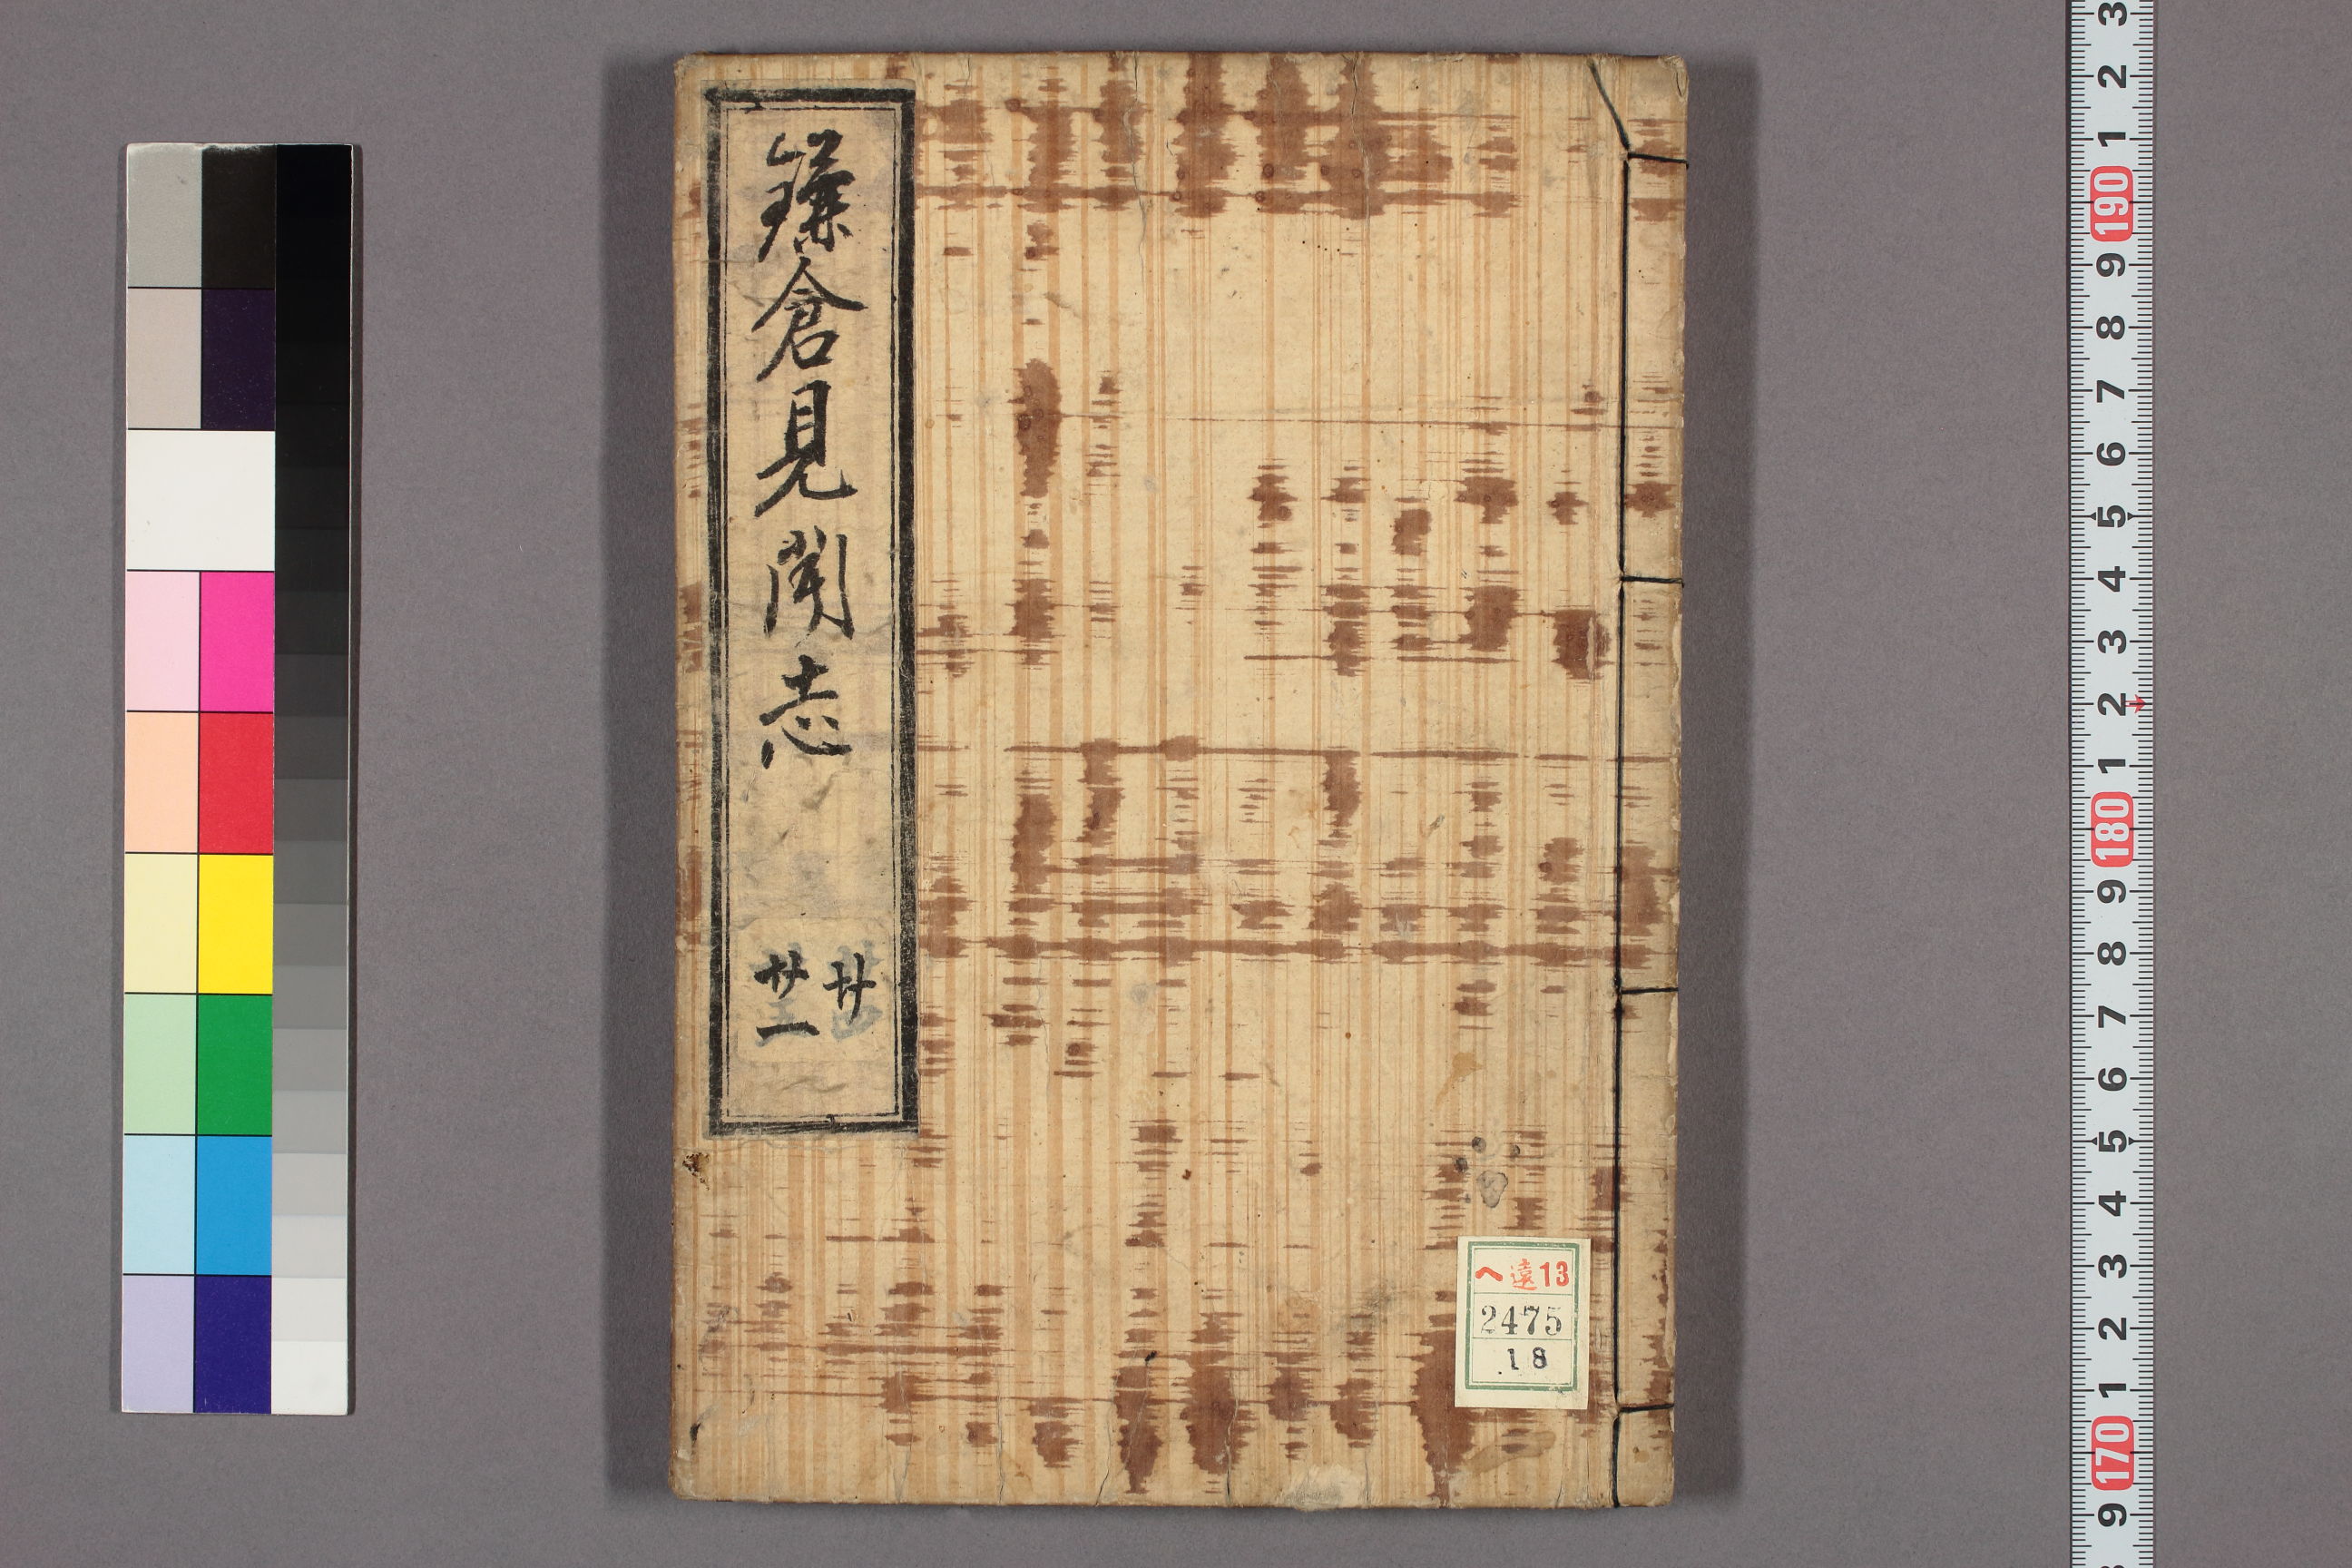 鎌倉見聞志
廿
廿一
ヘ遠13
2475
18
3
2
1
190
9
8
7
6
5
4
3
2
1
180
9
8
7
6
5
4
3
2
1
170
9